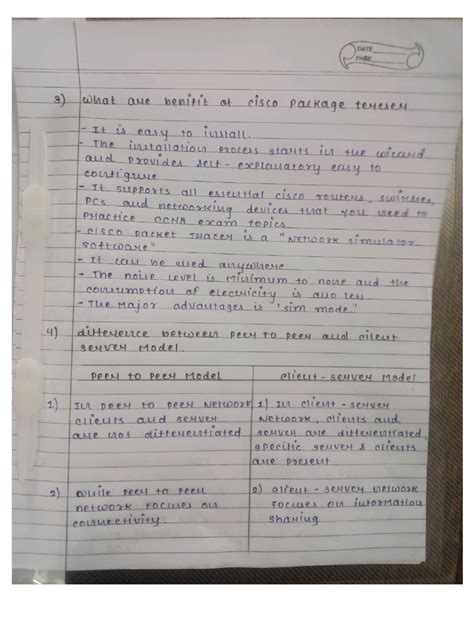 DATE
PAGE
3) what are benifit of cisco package terecer
- It is easy to install.
- The installation process starts in the wizard
and provides self-explanatory easy to
configure
- It supports all essential cisco routers, switches,
PCs and networking devices that you need to
practice CCNA exam topics.
- CISCO PACKET TRACER is a "NETWORK simulator
software"
- It can be used anywhere
- The noise level is Minimum to none and the
consumption of electricity is also less
- The Major advantages is "sim mode"
4) difference between peer to peer and client
server Model.
peer to peer Model
client-server Model
1) In peer to peer Network
clients and server
are not differentiated
1) In client-server
Network, clients and
server are differentiated,
specific server & clients
are present
2) while peer to peer
network focuses on
connectivity.
2) client-server network
focuses on information
sharing